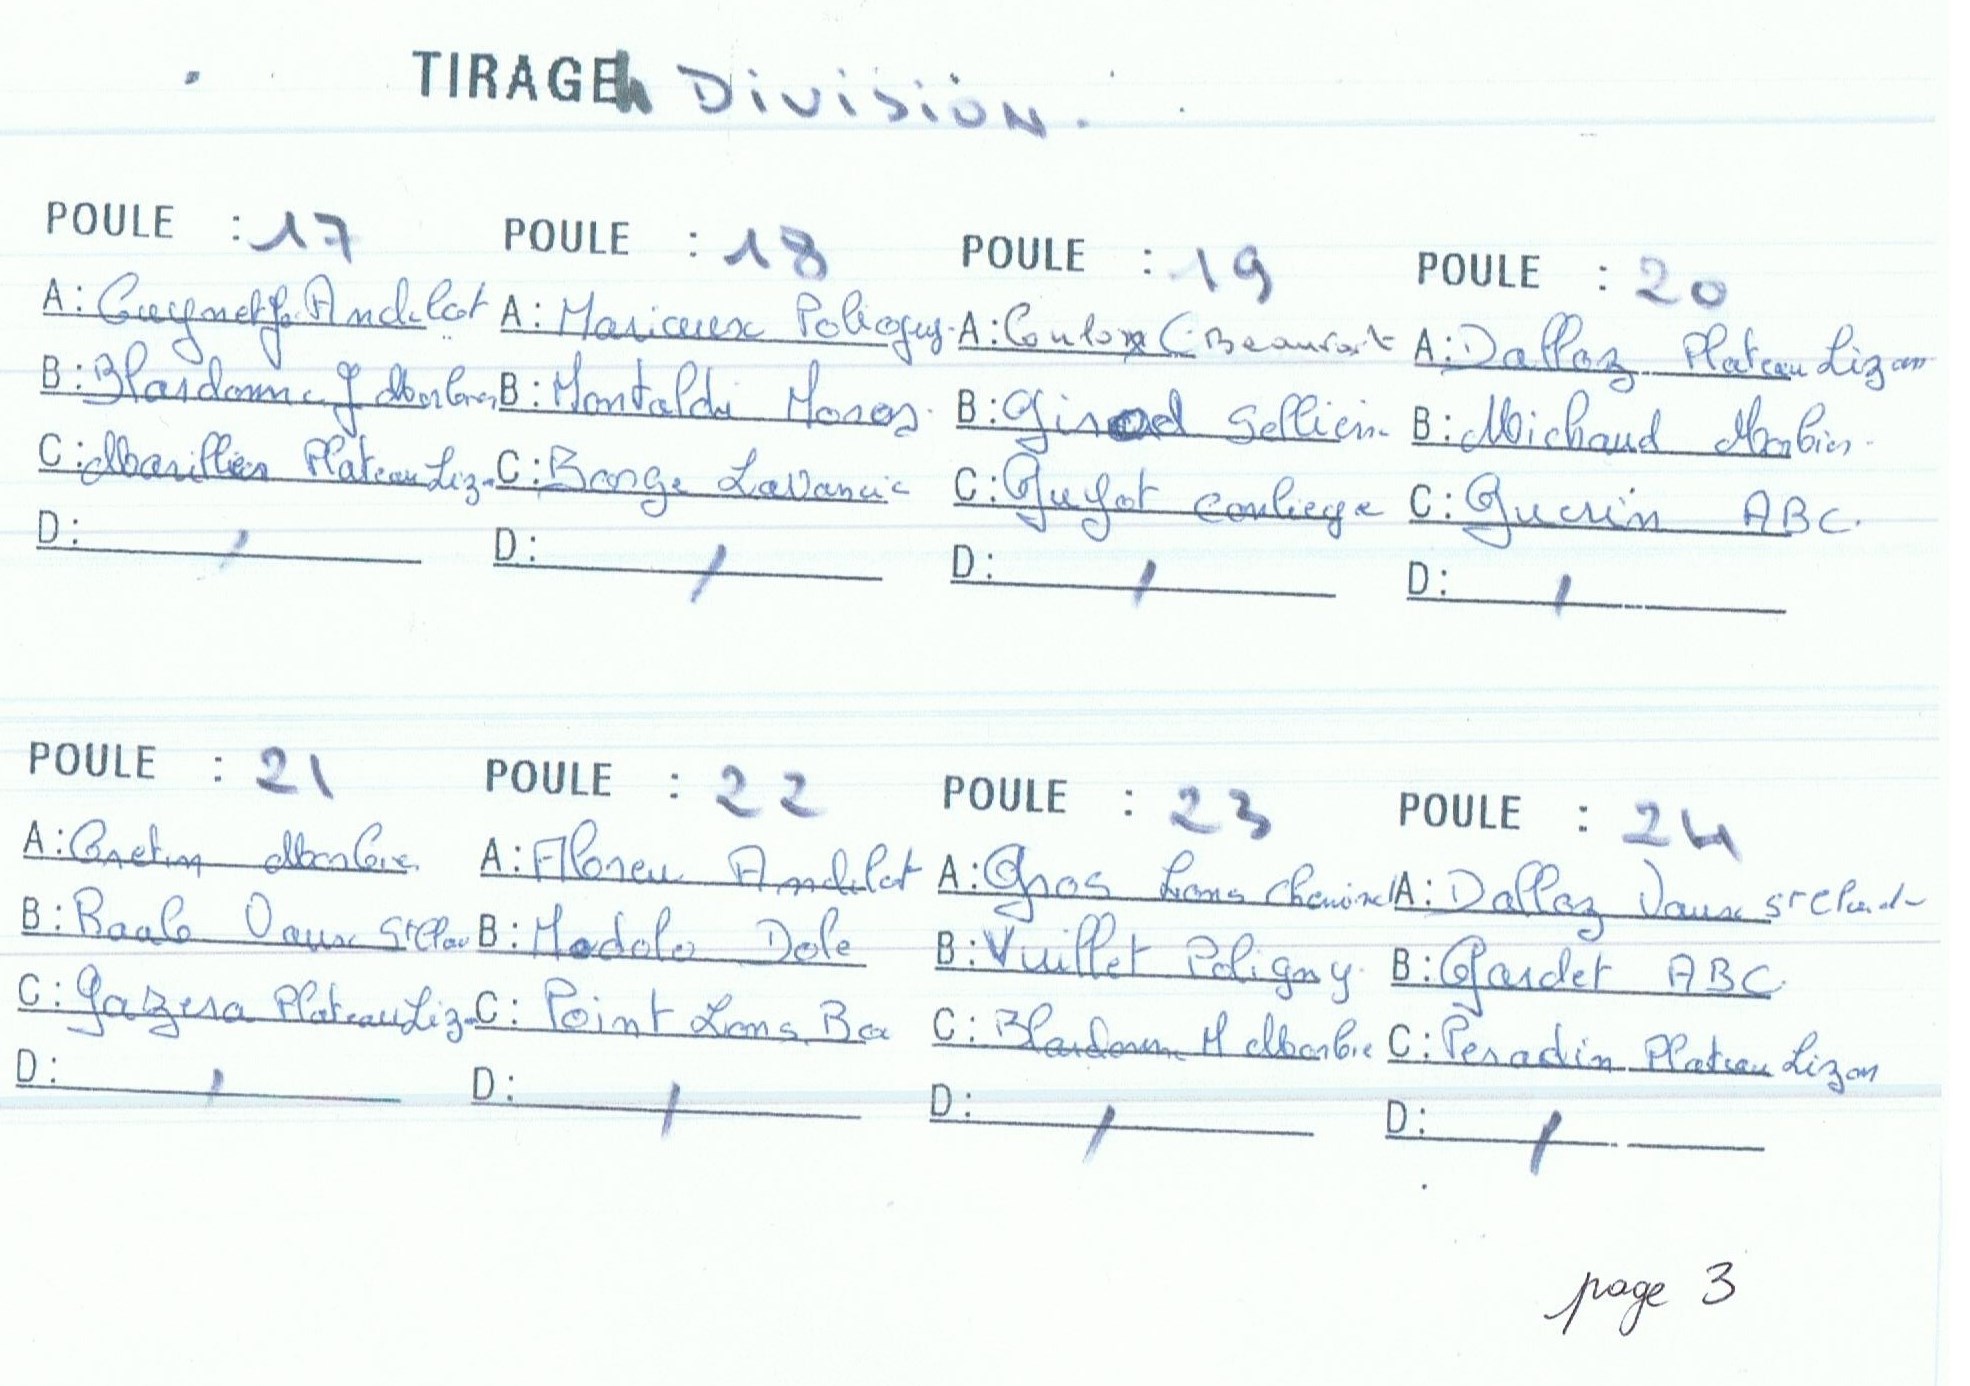 TIRAGE 4 Division.
POULE : 17
A: Guygnet J. Andelot
B: Blardonne J Morbier
C: Marillier Plateau Liz
D: /
POULE : 18
A: Marieux Poligny.
B: Montaldi Morez.
C: Barge Lavancia
D: /
POULE : 19
A: Coulon C Beaufort
B: Girod Sellières
C: Guyot Conliege
D: /
POULE : 20
A: Dalloz Plateau Lizon
B: Michaud Morbier.
C: Guerin ABC.
D: /
POULE : 21
A: Cretin Morbier
B: Vaux St Clau
C: Gazera Plateau Liz
D: /
POULE : 22
A: Andelot
B: Modolo Dole
C: Point Lons Ba
D: /
POULE : 23
A: Gros Lons Cheminel
B: Vuillet Poligny.
C: Blardonne M Morbie
D: /
POULE : 24
A: Dalloz Vaux St Claud
B: Gardet ABC.
C: Peradin Plateau Lizon
D: /
page 3